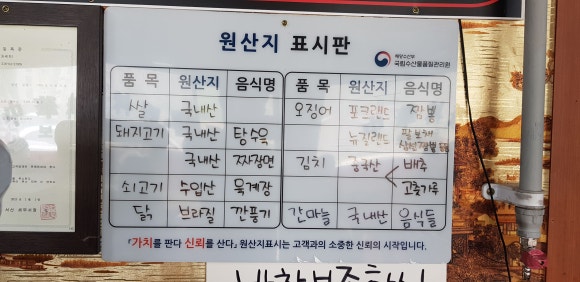 원산지 표시판
해양수산부
국립수산물품질관리원
품 목 원산지 음식명 품 목 원산지 음식명
쌀 국내산 오징어 포크랜드 짬뽕
돼지고기 국내산 탕수육 뉴질랜드
국내산 짜장면 김치 중국산 배추
쇠고기 수입산 육계장 고춧가루
닭 브라질 깐풍기 간마늘 국내산 음식들
「가치를 판다 신뢰를 산다」 원산지표시는 고객과의 소중한 신뢰의 시작입니다.